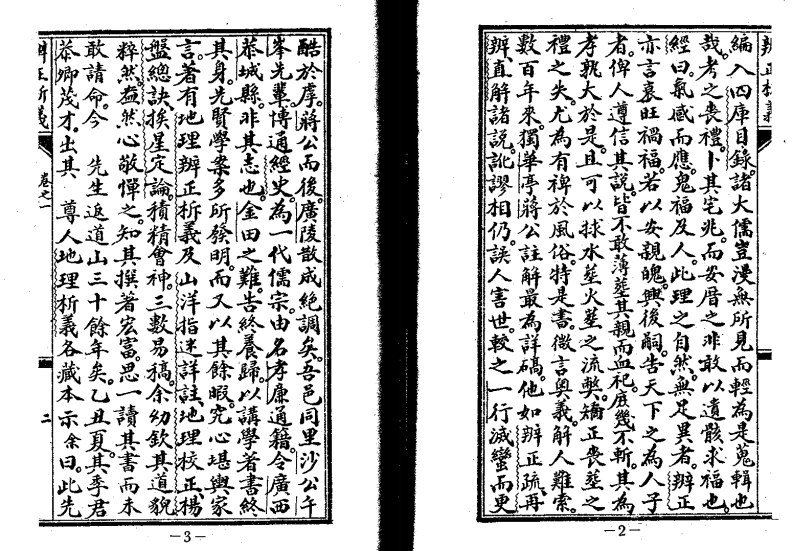 辨正析義
編入四庫目錄諸大儒豈漫無所見而輕為是蒐輯也
哉考之喪禮卜其宅兆而安厝之非敢以遺骸求福也
經曰氣感而應鬼福及人此理之自然無足異者辨正
亦言衰旺禍福若以安親魄興後嗣告天下之為人子
者俾人遵信其說皆不敢薄葬其親而血祀庶幾不斬其為
孝孰大於是且可以捄水葬火葬之流獘矯正喪葬之
禮之失尤為有裨於風俗特是書微言奧義解人難索
數百年來獨華亭蔣公註解最為詳碻他如辨正疏再
辨直解諸說訛謬相仍誤人害世較之一行滅蠻而更
—2—
酷於厚蔣公而後廣陵散成絕調矣吾邑同里沙公午
峯先輩博通經史為一代儒宗由名孝廉通籍令廣西
恭城縣非其志也金田之難告終養歸以講學著書終
其身先賢學案多所發明而又以其餘暇究心堪輿家
言著有地理辨正析義及山洋指迷詳註地理校正楊
盤總訣挨星定論積精會神三數易稿余幼欽其道貌
粹然盎然心敬憚之知其撰著宏富思一讀其書而未
敢請命今 先生返道山三十餘年矣乙丑夏其季君
恭卿茂才出其 尊人地理析義各藏本示余曰此先
辨正析義 卷之一 二
—3—